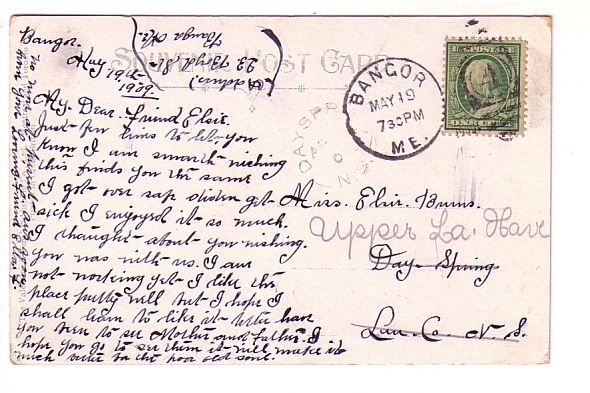 SOUVENIR POST CARD
Bangor.
May 19th
1909.
My. Dear. Friend Elsie.
Just few lines to let you
know I am smarth wishing
this finds you the same
I got over safe diden get
sick I enjoyed it so much.
I thought about you wishing
you was with us. I am
not working yet I like the
place pretty well but I hope I
shall learn to like it better have
you been to see Mother and Father. I
hope you go to see them it will make it
much better for the poor old soul.
(Address)
23 Boyd St
Bangor Me.
BANGOR
MAY 19
730PM
ME.
U.S. POSTAGE
ONE CENT
DAYSPR
N.S
Miss. Elsie. Burns.
Upper La Have
Day-Spring
Lun. Co. N. S.